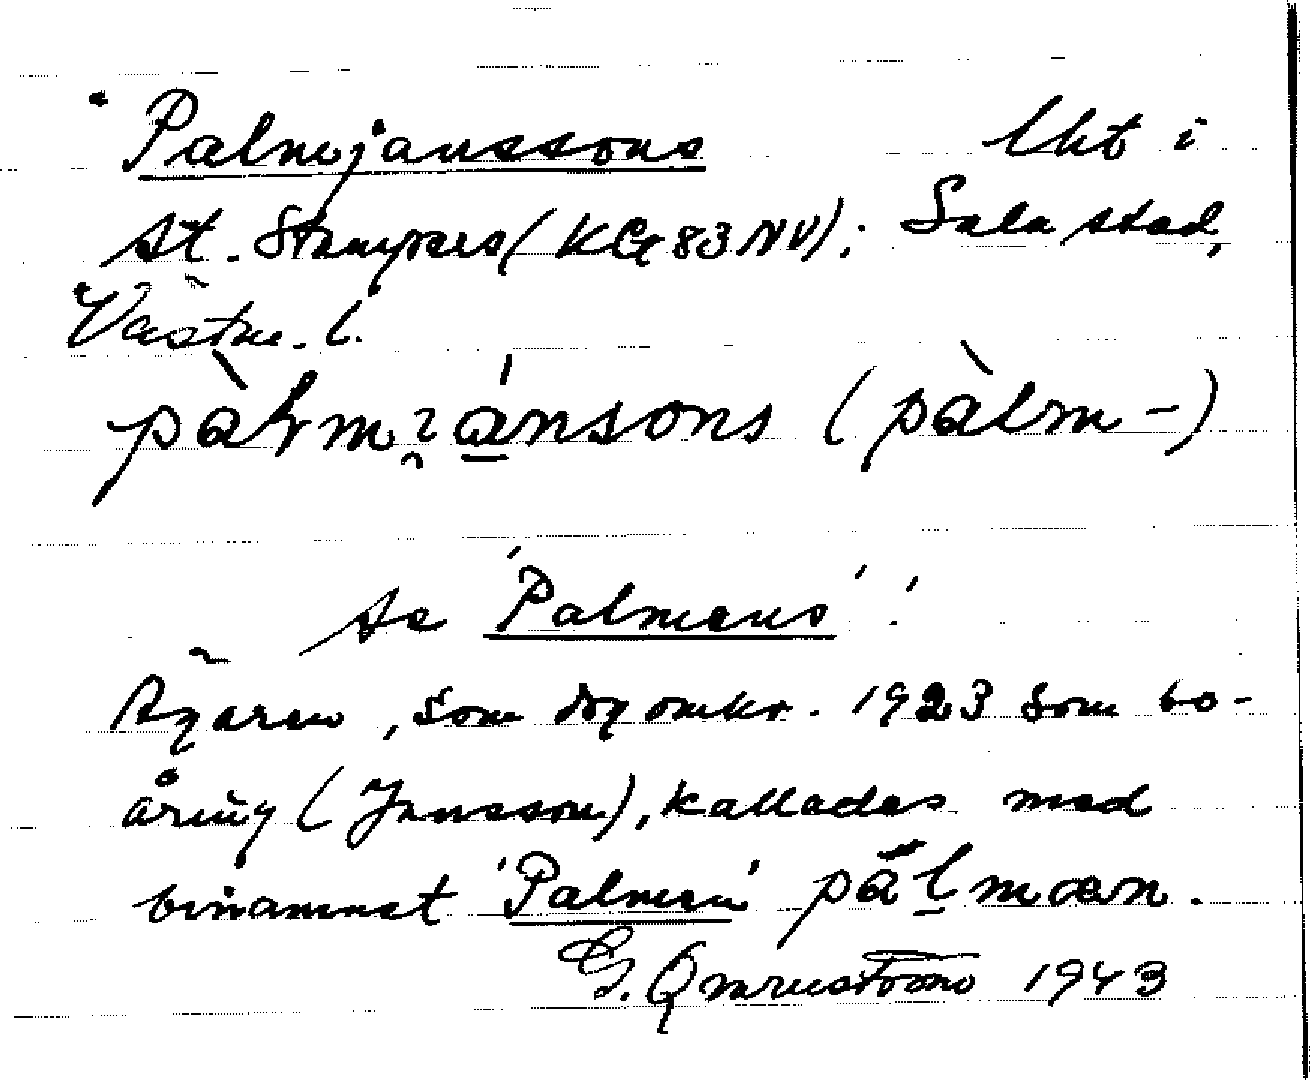 Palmjanssons lht i
St. Stampers (KG 83 NV); Sala stad,
Västm. l.
pàlmɿánsons (pàlm-)
se 'Palmens'!
Ägaren, som dog omkr. 1923 som 60-
åring (Jansson), kallades med
binamnet 'Palmen' pálmæn.
G. Qvarnström 1943